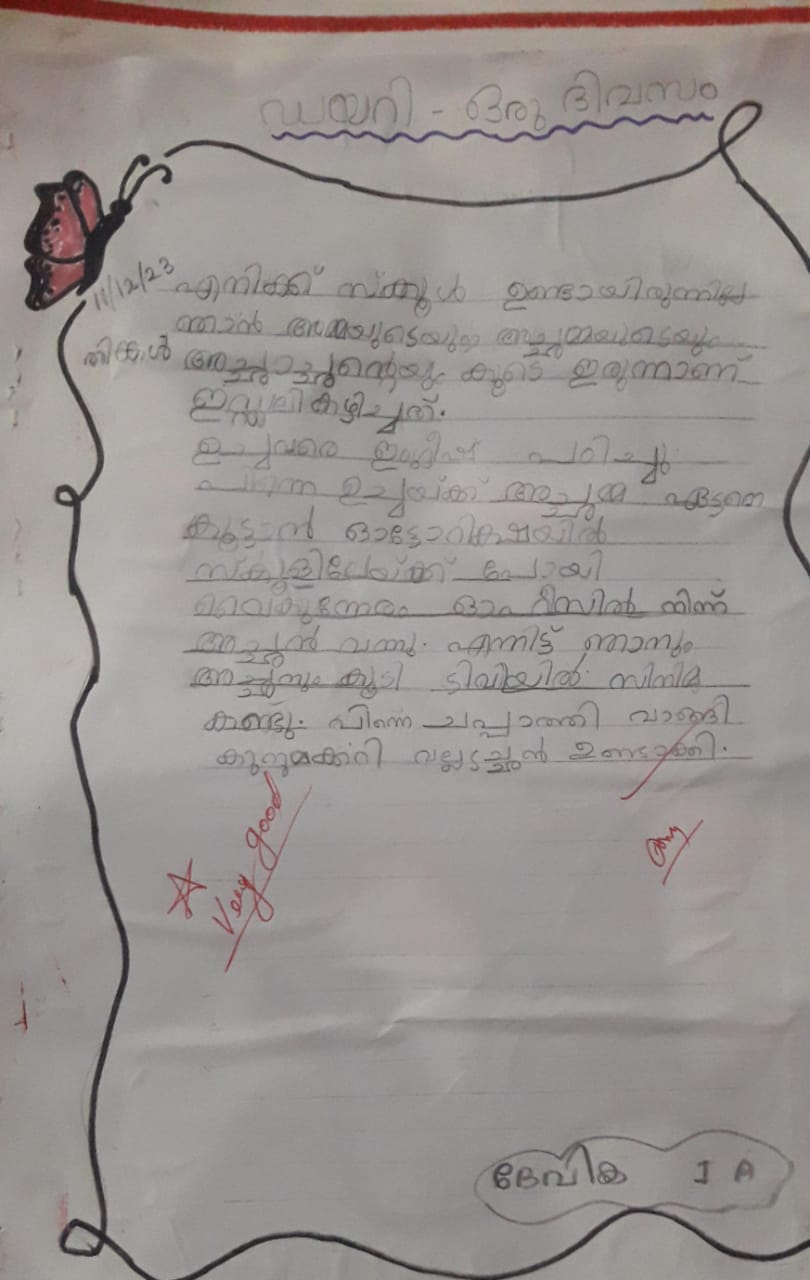 ഡയറി - ഒരു ദിവസം
11/12/23
തിങ്കൾ
എനിക്ക് സ്ക്കൂൾ ഉണ്ടായിരുന്നില്ല
ഞാൻ അമ്മയുടെയും അച്ചമ്മയുടെയും
അച്ചാച്ചൻ്റെയും കൂടെ ഇരുന്നാണ്
ഇഡ്ഡലി കഴിച്ചത്.
ഉച്ചവരെ ഇംഗ്ലീഷ് പഠിച്ചു
പിന്നെ ഉച്ചയ്ക്ക് അച്ചമ്മ ഏട്ടനെ
കൂട്ടാൻ ഓട്ടോറിക്ഷയിൽ
സ്കൂളിലേയ്ക്ക് പോയി
വൈകുന്നേരം ഓഫീസിൽ നിന്ന്
അച്ചൻ വന്നു. എന്നിട്ട് ഞാനും
അച്ചനും കൂടി ടിവിയിൽ സിനിമ
കണ്ടു. പിന്നെ ചപ്പാത്തി വാങ്ങി
കുറുമക്കറി വല്ല്യച്ചൻ ഉണ്ടാക്കി.
Very good
ദേവിക I A